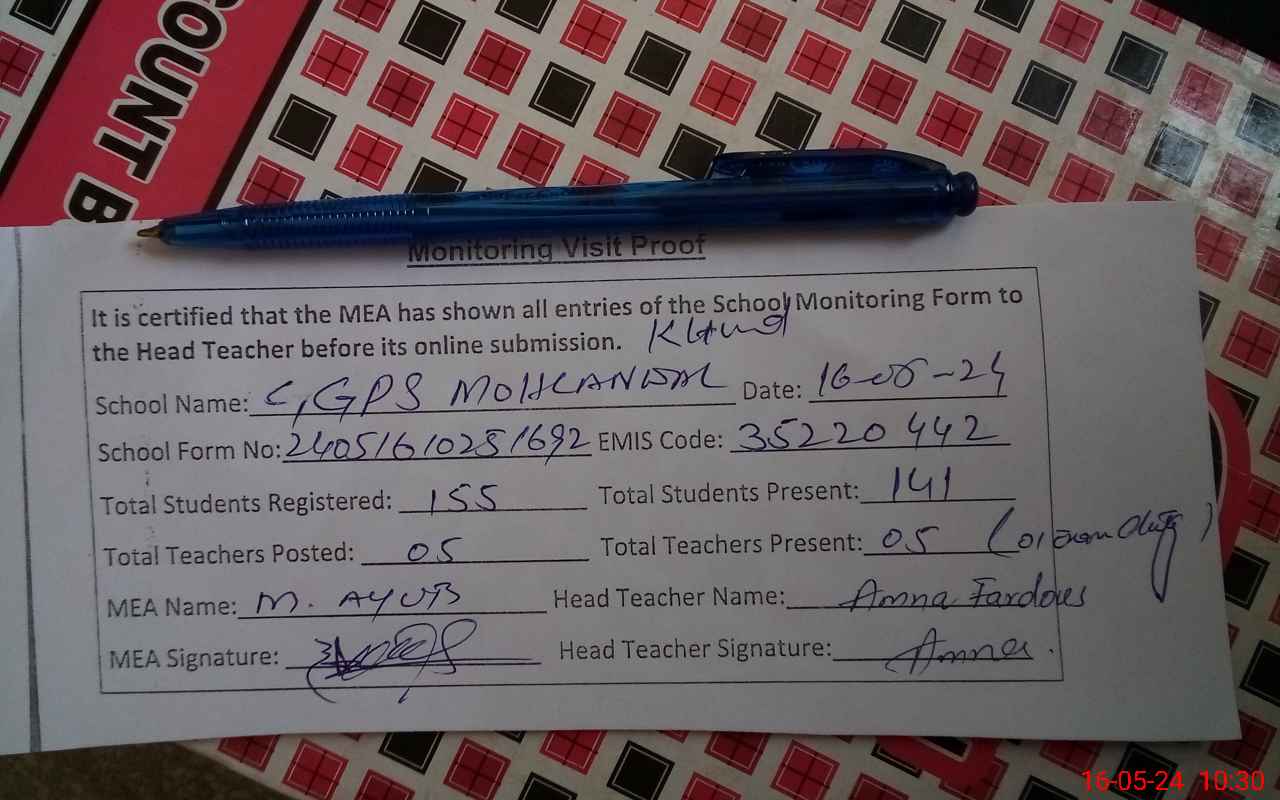 COUNT B
Monitoring Visit Proof
It is certified that the MEA has shown all entries of the School Monitoring Form to
the Head Teacher before its online submission.
School Name: C,GPS MOHLANWAL Date: 16-05-24
School Form No: 24051610281692 EMIS Code: 35220442
Total Students Registered: 155 Total Students Present: 141
Total Teachers Posted: 05 Total Teachers Present: 05 (01 Exam Duty)
MEA Name: M. AYUB Head Teacher Name: Amna Fardous
MEA Signature: Head Teacher Signature: Amna.
16-05-24 10:30